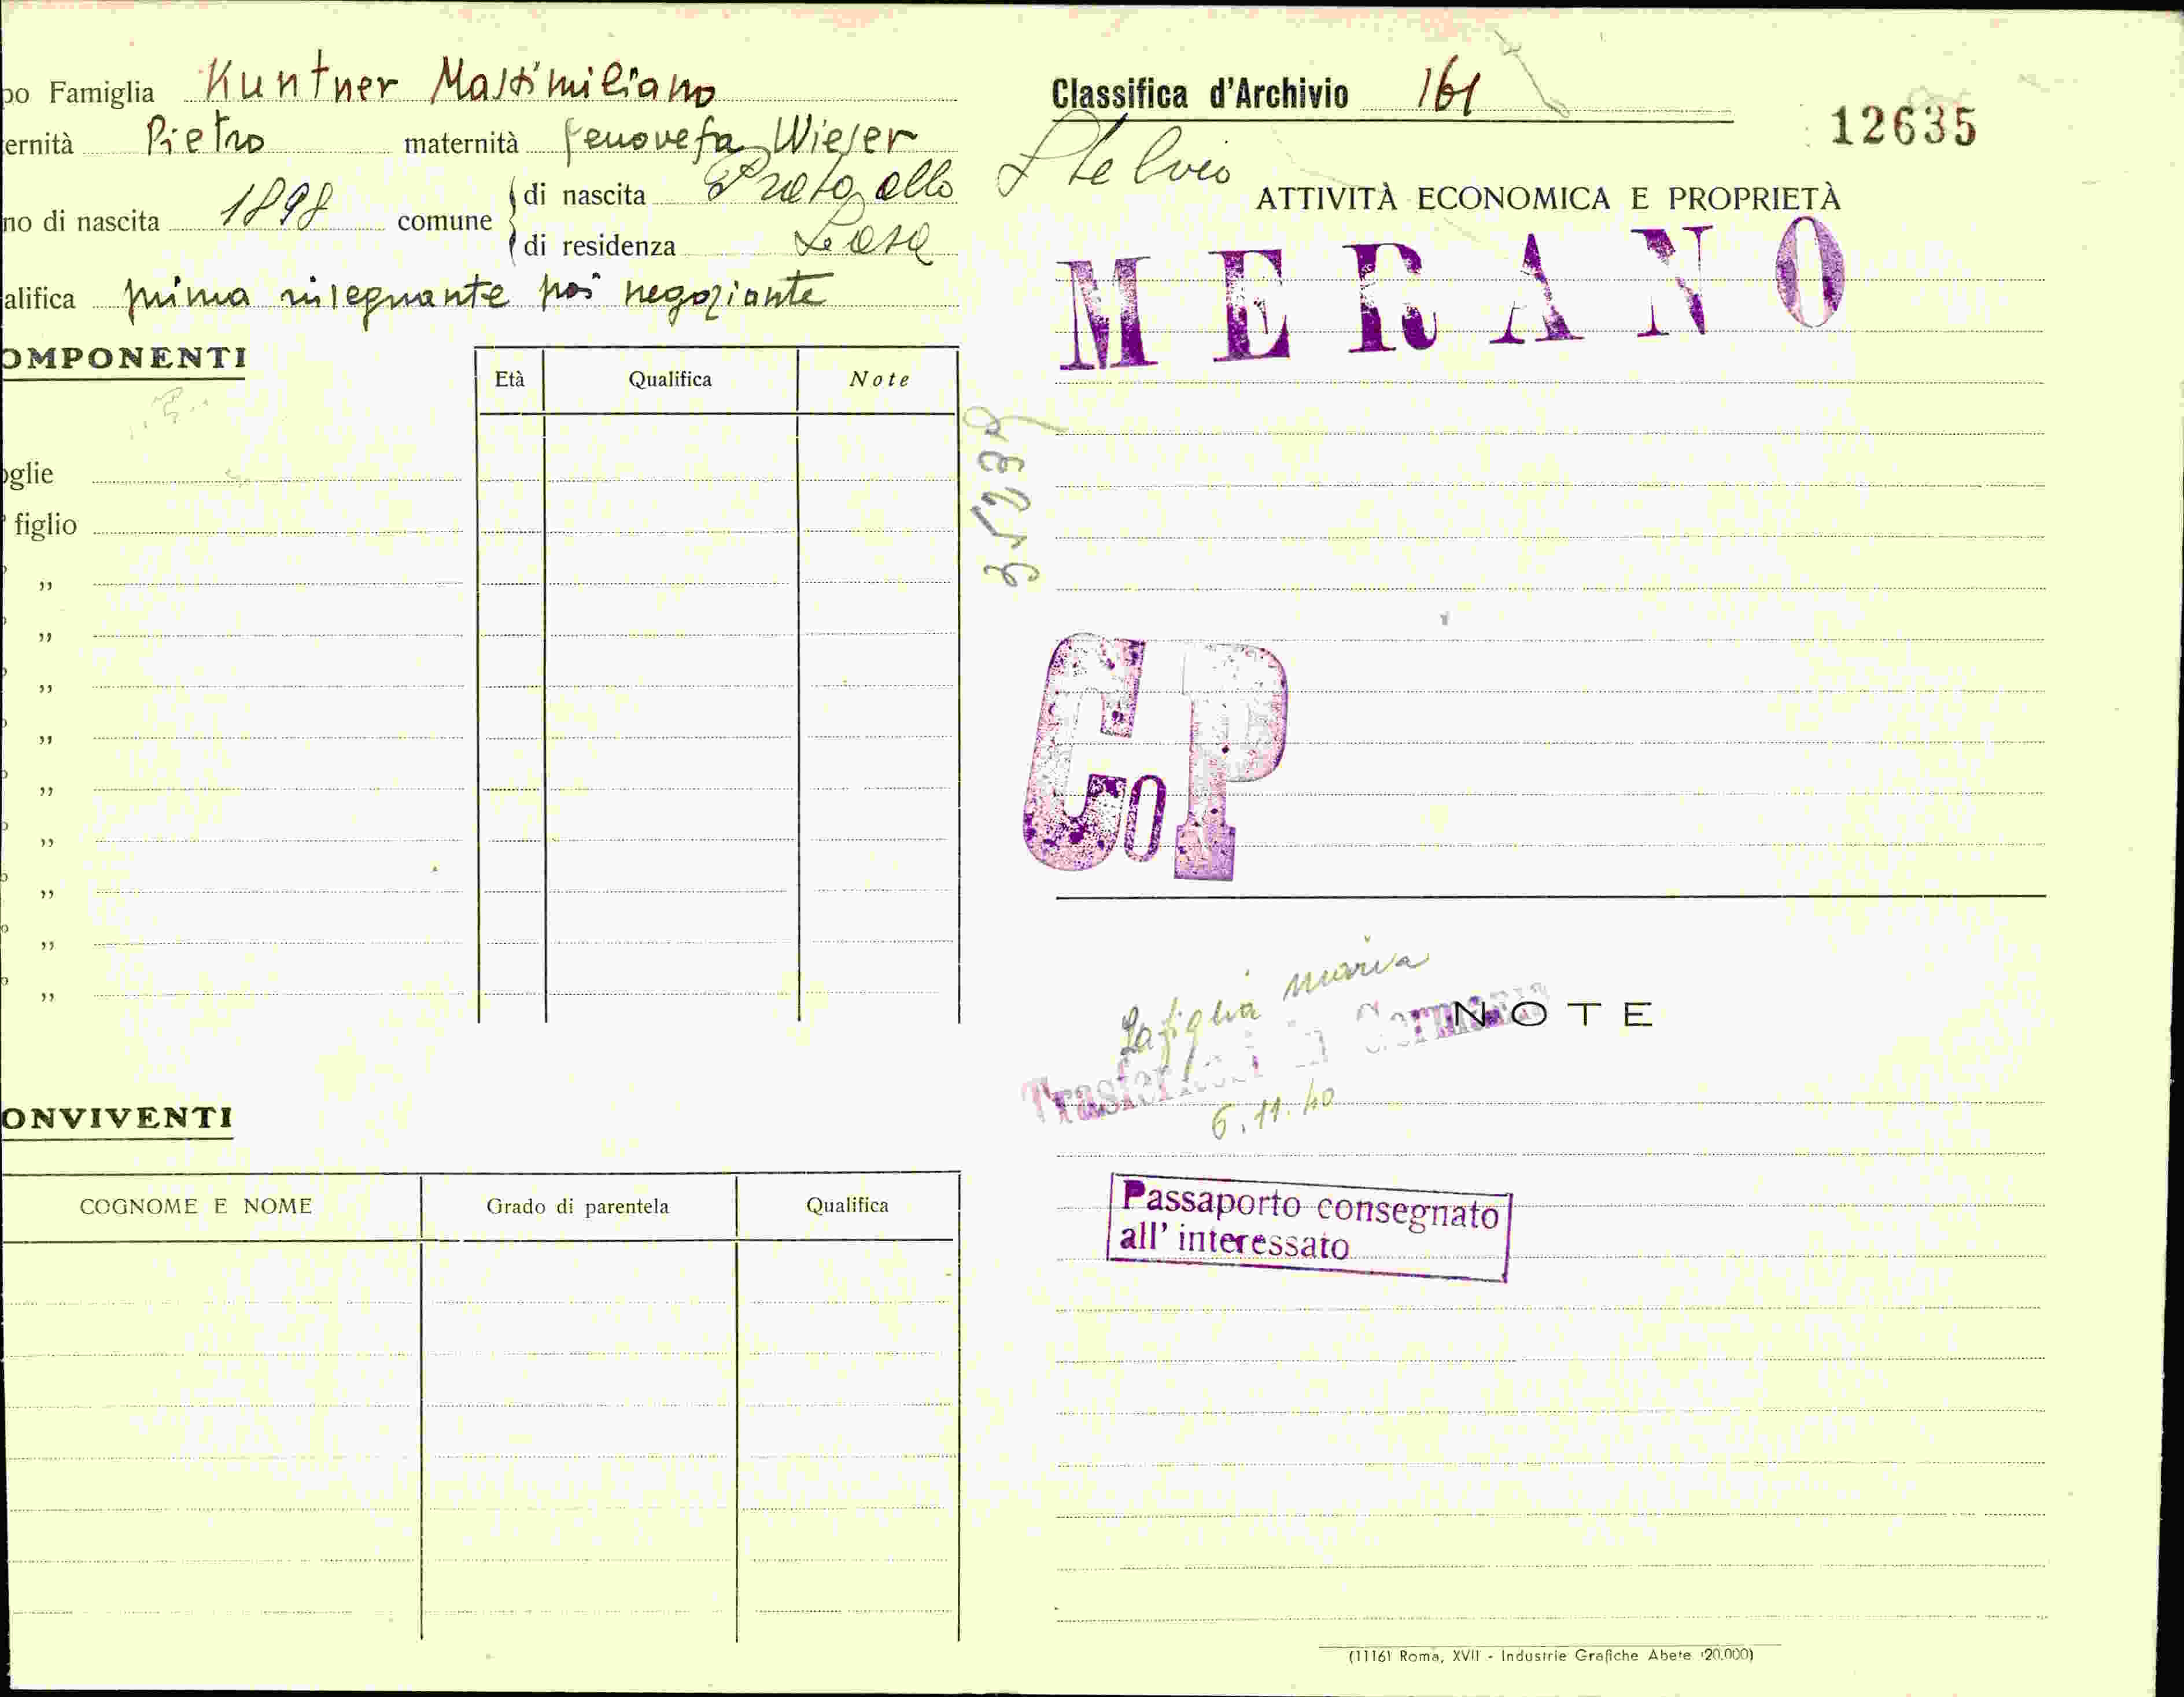 po Famiglia Kuntner Massimiliano
ernità Pietro maternità Genovefa Wieser
no di nascita 1898 comune { di nascita Prato allo Stelvio
di residenza Lasa
alifica prima insegnante poi negoziante
OMPONENTI
Età Qualifica Note
oglie
figlio
„
„
„
„
„
„
„
„
„
ONVIVENTI
COGNOME E NOME Grado di parentela Qualifica
Classifica d'Archivio 161
12635
ATTIVITÀ ECONOMICA E PROPRIETÀ
MERANO
GoP
La figlia maria
NOTE
in Germania
6.11.40
Passaporto consegnato
all' interessato
(1116) Roma, XVII - Industrie Grafiche Abete (20.000)